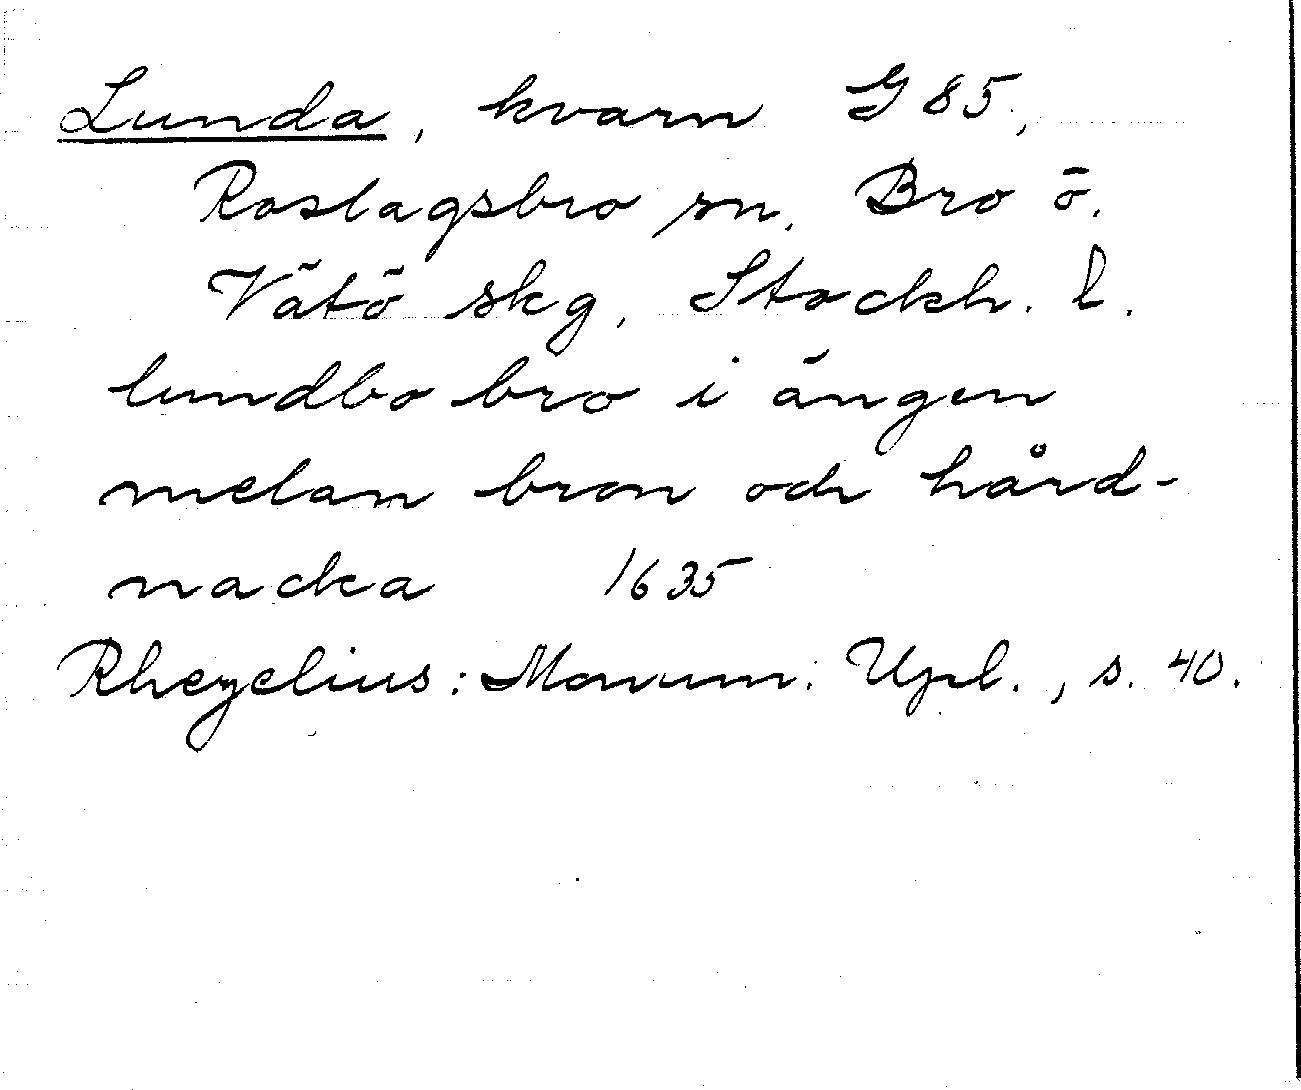 Lunda, kvarn G 85,
Roslagsbro sn. Bro o.
Vätö skg, Stockh. l.
lundbo bro i ängen
melan bron och hård-
nacka 1635
Rhezelius: Monum. Upl., s. 40.